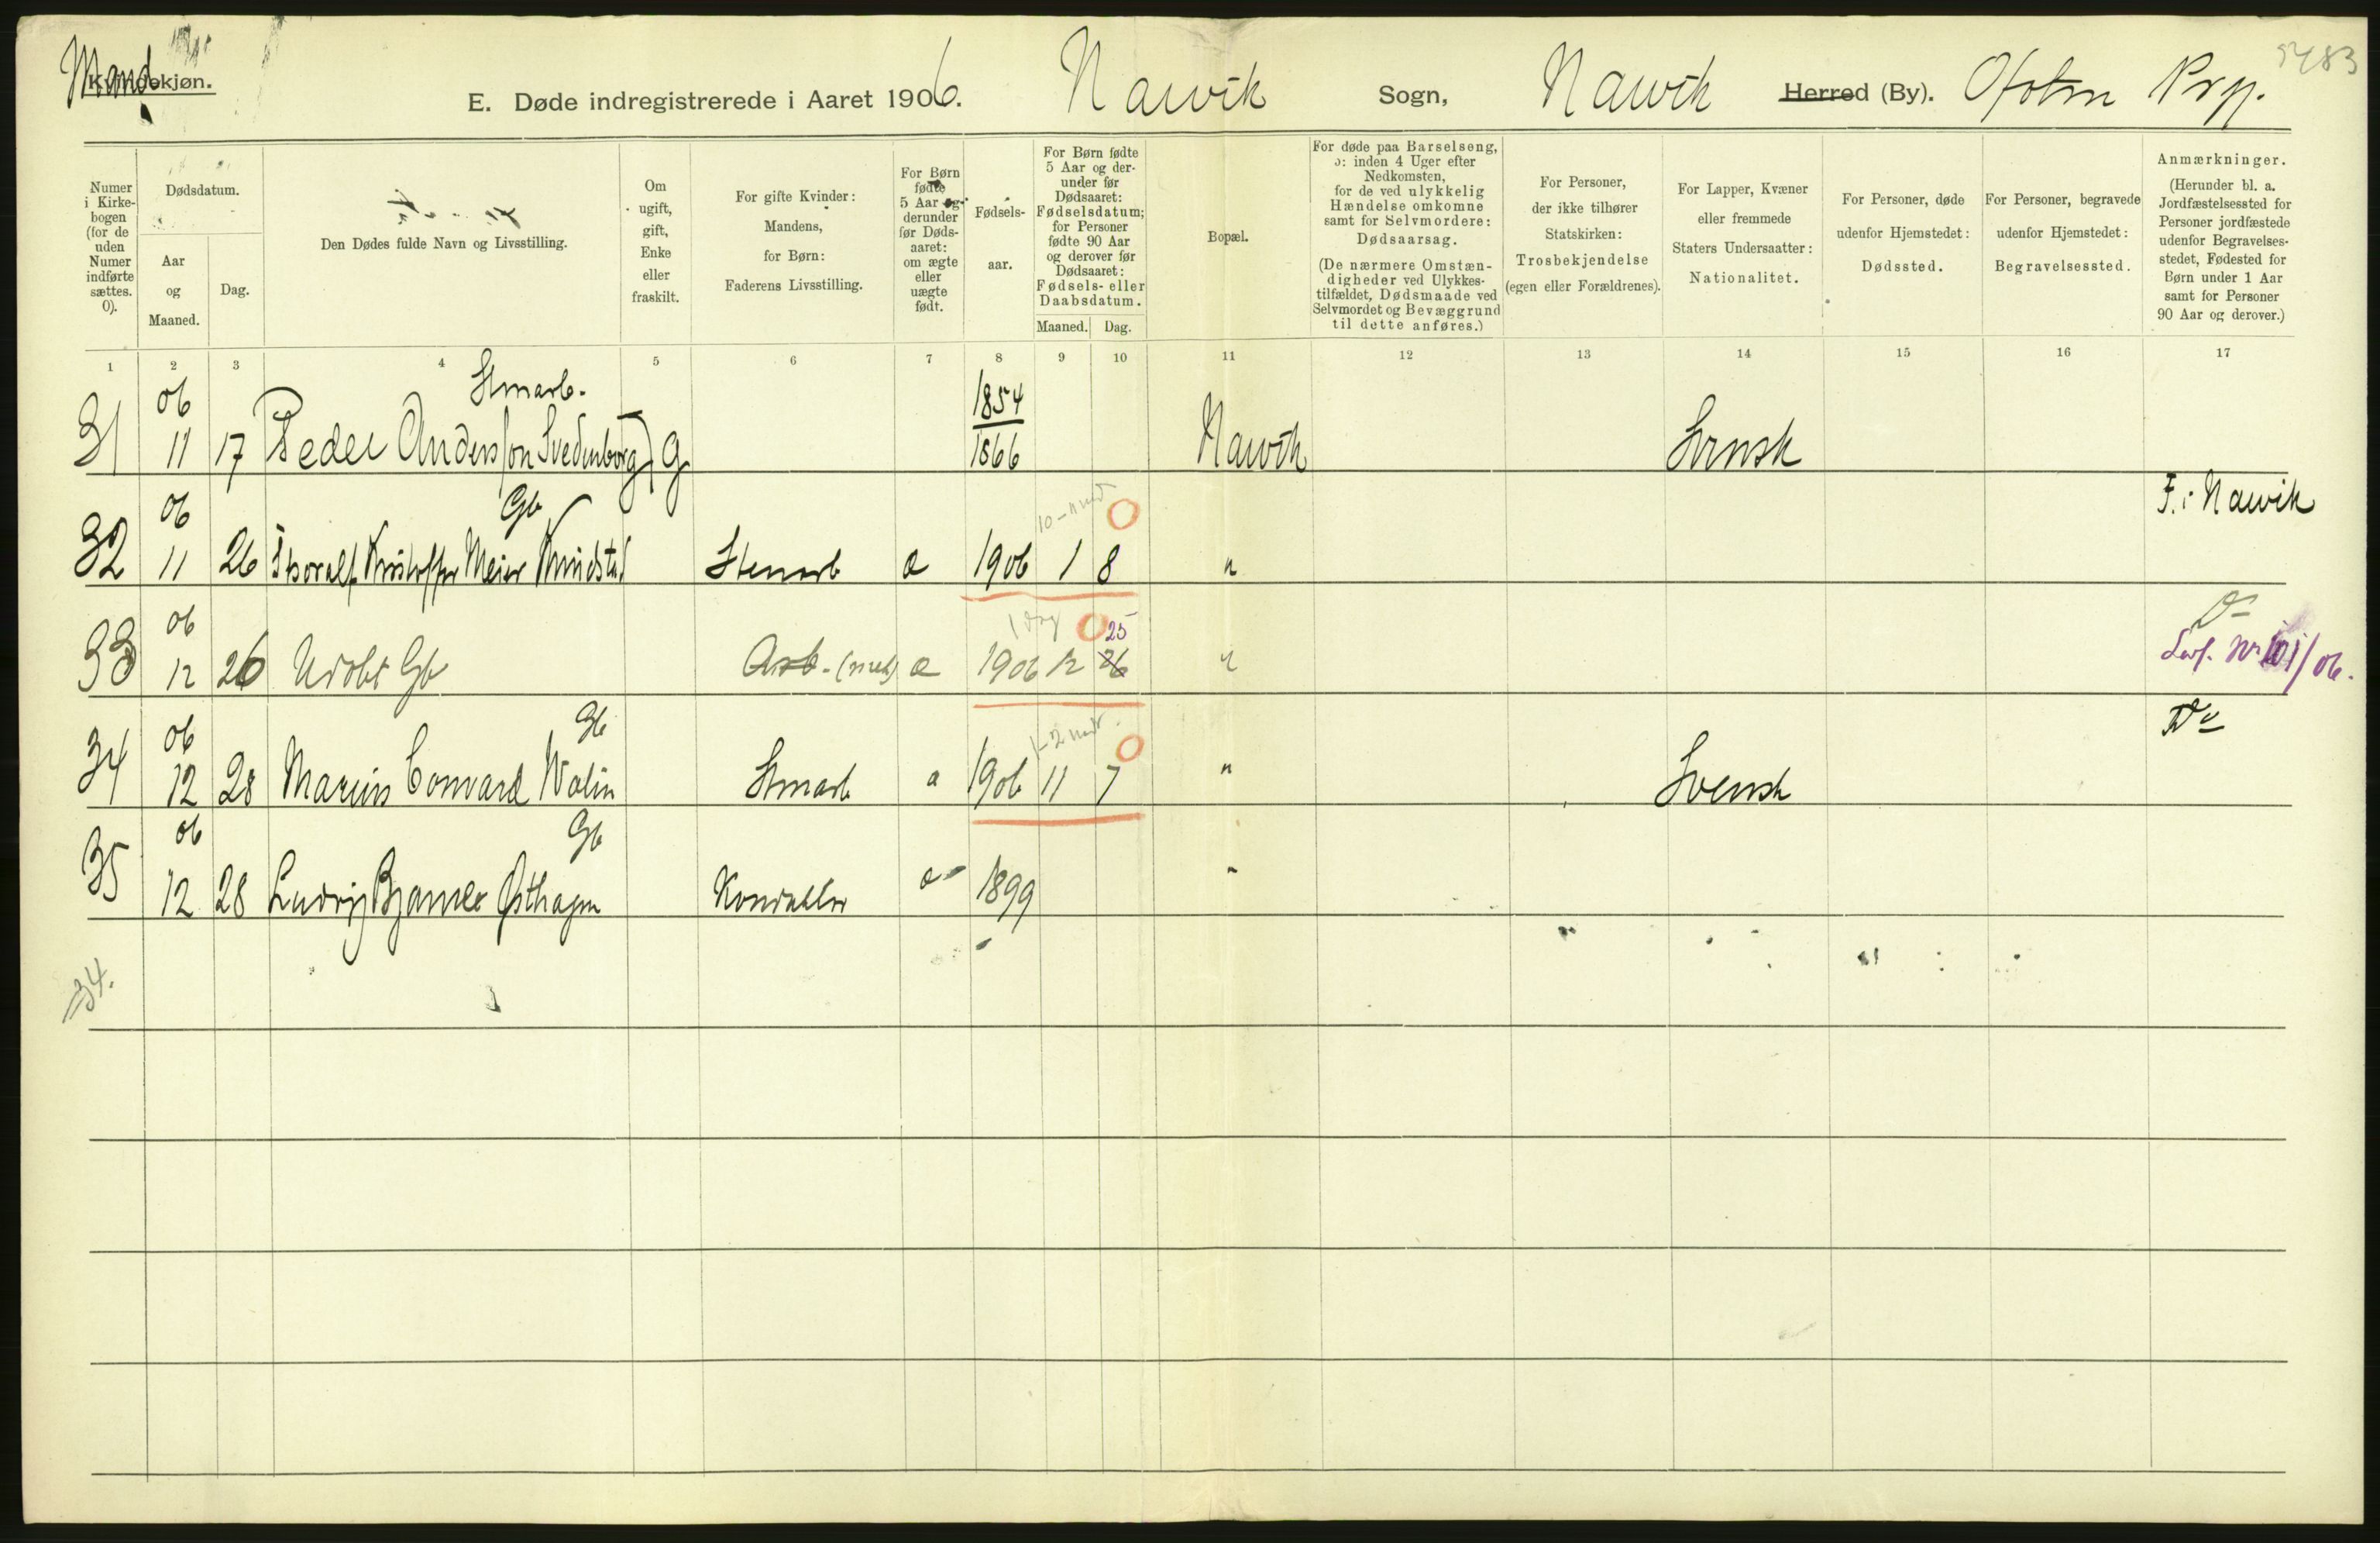 Mand Kvindekjøn.
E. Døde indregistrerede i Aaret 1906. Narvik Sogn, Narvik Herred (By). Ofoten Prgj. 5483
Numer i Kirkebogen (for de uden Numer indførte sættes. 0).
Dødsdatum.
Aar og Maaned.
Dag.
Den Dødes fulde Navn og Livsstilling.
Om ugift, gift, Enke eller fraskilt.
For gifte Kvinder: Mandens, for Børn: Faderens Livsstilling.
For Børn fødte 5 Aar og derunder før Dødsaaret: om ægte eller uægte født.
Fødselsaar.
For Børn fødte 5 Aar og derunder før Dødsaaret: Fødselsdatum; for Personer fødte 90 Aar og derover før Dødsaaret: Fødsels- eller Daabsdatum.
Maaned. Dag.
Bopæl.
For døde paa Barselseng, ɔ: inden 4 Uger efter Nedkomsten, for de ved ulykkelig Hændelse omkomne samt for Selvmordere: Dødsaarsag. (De nærmere Omstændigheder ved Ulykkestilfældet, Dødsmaade ved Selvmordet og Bevæggrund til dette anføres.)
For Personer, der ikke tilhører Statskirken: Trosbekjendelse (egen eller Forældrenes).
For Lapper, Kvæner eller fremmede Staters Undersaatter: Nationalitet.
For Personer, døde udenfor Hjemstedet: Dødssted.
For Personer, begravede udenfor Hjemstedet: Begravelsessted.
Anmærkninger. (Herunder bl. a. Jordfæstelsessted for Personer jordfæstede udenfor Begravelsesstedet, Fødested for Børn under 1 Aar samt for Personer 90 Aar og derover.)
1 2 3 4 5 6 7 8 9 10 11 12 13 14 15 16 17
06 Stenarb. 1854
31 11 17 Peder Andersson Svedenborg g 1866 Narvik Svensk
06 Gb 10-11 md 0 F. i Narvik
32 11 26 Thoralf Kristoffer Meier Stenarb æ 1906 1 8 "
06 1 dag 0 25 Do
33 12 26 Udøbt Gb Arb. æ 1906 12 26 " No 101/06.
06 Gb 1-2 md. 0 Do
34 12 28 Marius Conrard Walin Stenarb æ 1906 11 7 " Svensk
06 Gb
35 12 28 Ludvig Bjarne Østhagen Konduktør æ 1899 "
34.